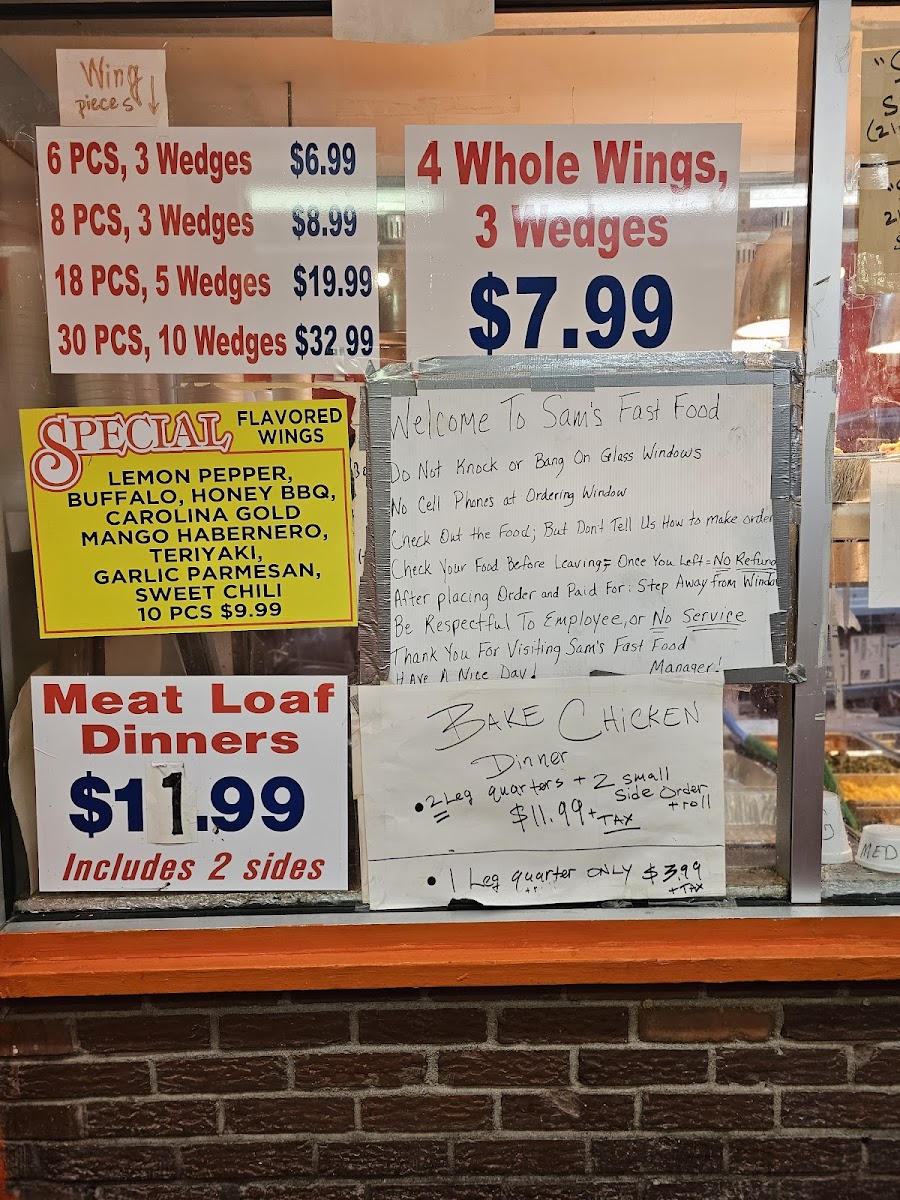 Wing
pieces
6 PCS, 3 Wedges $6.99
8 PCS, 3 Wedges $8.99
18 PCS, 5 Wedges $19.99
30 PCS, 10 Wedges $32.99
4 Whole Wings,
3 Wedges
$7.99
SPECIAL FLAVORED
WINGS
LEMON PEPPER,
BUFFALO, HONEY BBQ,
CAROLINA GOLD
MANGO HABERNERO,
TERIYAKI,
GARLIC PARMESAN,
SWEET CHILI
10 PCS $9.99
Welcome To Sam's Fast Food
Do Not Knock or Bang On Glass Windows
No Cell Phones at Ordering Window
Check Out the Food; But Dont Tell Us How to make order
Check Your Food Before Leaving= Once You Left = No Refund
After placing Order and Paid For: Step Away from Windo
Be Respectful To Employee, or No Service
Thank You For Visiting Sam's Fast Food
Have A Nice Day! Manager!
Meat Loaf
Dinners
$11.99
Includes 2 sides
BAKE CHICKEN
Dinner
• 2 Leg quarters + 2 small
Side Order
+ roll
$11.99 + TAX
• 1 Leg quarter ONLY $3.99
+ TAX
MED